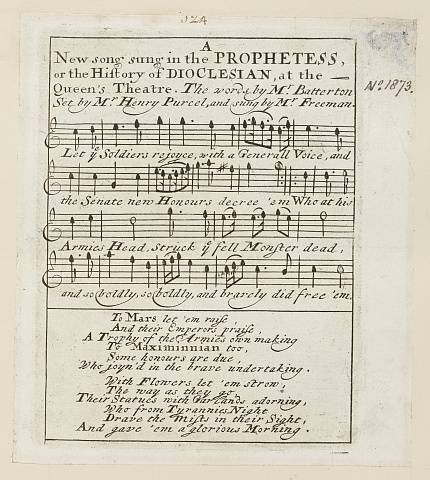 524
A
New song sung in the PROPHETESS,
or the History of DIOCLESIAN, at the
Queen's Theatre. The words by Mr. Batterton
Set by Mr. Henry Purcel, and sung by Mr. Freeman.
No. 1873.
Let ye Soldiers rejoyce, with a Generall Voice, and
the Senate new Honours decree 'em Who at his
Armies Head, Struck ye fell Monster dead,
and so boldly, so boldly, and bravely did free 'em.
To Mars let 'em raise,
And their Emperors praise,
A Trophy of the Armies own making
To Maximinnian too,
Some honours are due,
Who joyn'd in the brave undertaking.
With Flowers let 'em strow,
The way as they go,
Their Statues with Garlands adorning,
Who from Tyrannies Night
Drave the Mists in their Sight,
And gave 'em a glorious Morning.